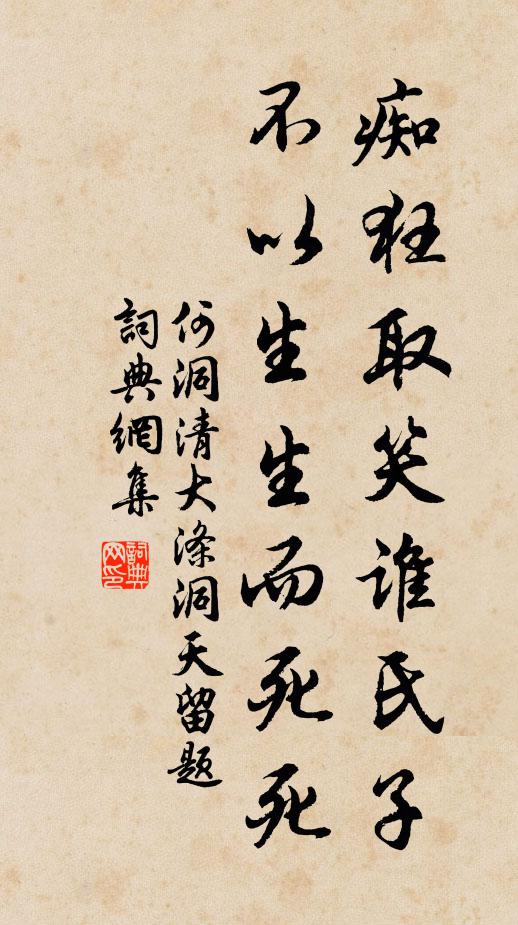 痴狂取笑谁氏子
不以生生而死死
何洞清大涤洞天留题
詞典網集
詞典网印